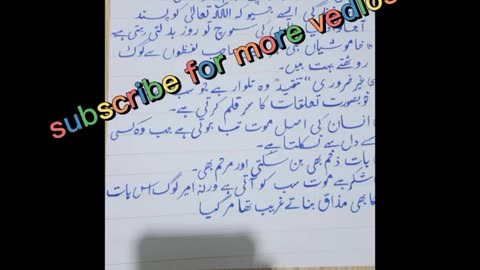 زندگی ایسے جیو کہ اللہ تعالیٰ کو پسند
سوچ کو روز بدلتی رہتی ہے
خاموشیاں ہی لفظوں سے لوگ
روٹھتے بہت ہیں۔
غیر ضروری "تنقید" وہ تلوار ہے جو سب
خوبصورت تعلقات کا سر قلم کرتی ہے۔
انسان کی اصل موت تب ہوتی ہے جب وہ کسی
کے دل سے نکلتا ہے۔
بات زخم بھی بن سکتی اور مرہم بھی۔
شکر ہے موت سب کو آتی ہے ورنہ امیر لوگ اس بات
کا بھی مذاق بناتے غریب تھا مر گیا
subscribe for more vedios